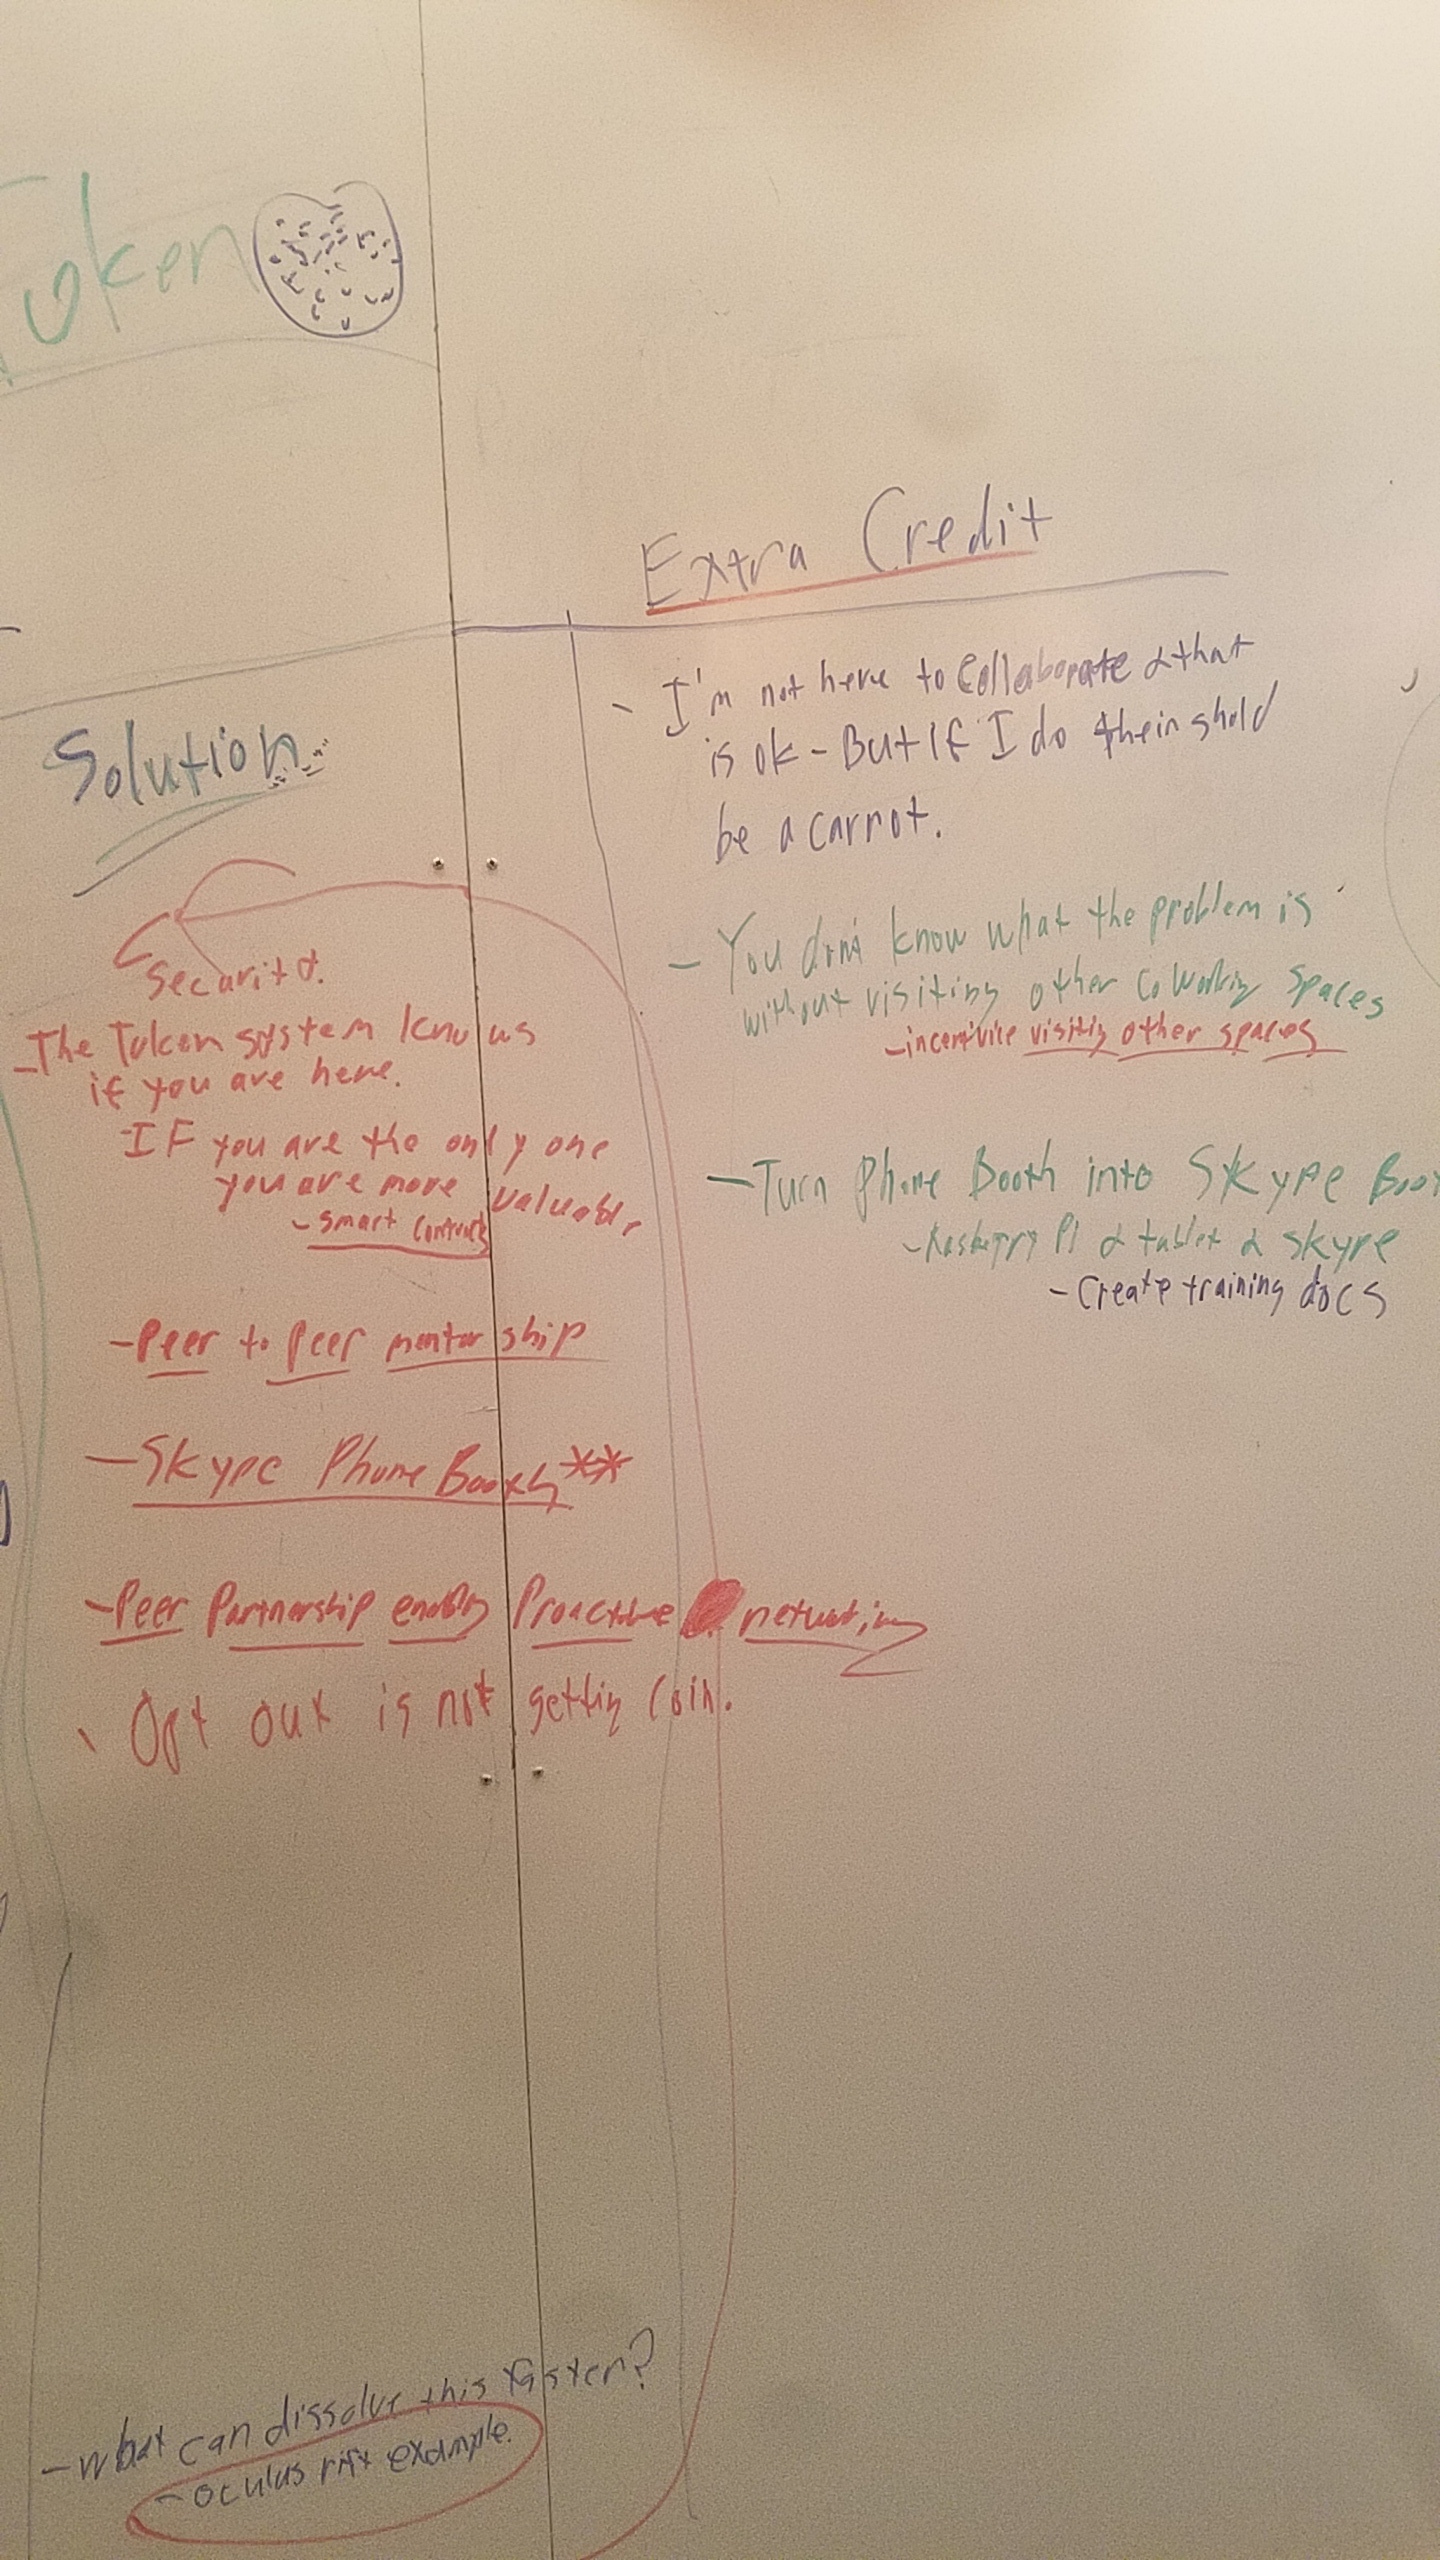 Token
Solution
Security.
- The Token system knows
if you are here.
IF you are the only one
you are more valuable,
- smart contracts
- Peer to Peer mentorship
- Skype Phone Booth **
- Peer Partnership enably Proactive networking
- Opt out is not getting Coin.
- what can dissolve this faster?
- oculus rift example.
Extra Credit
- I'm not here to collaborate & that
is ok - But if I do thein shold
be a carrot.
- You don't know what the problem is
without visiting other Coworking spaces
- incentivice visitig other spaces
- Turn Phone Booth into Skype Boo
- Rasberry Pi & tablet & skype
- Create training docs